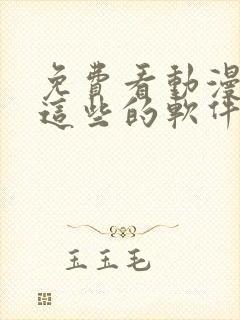 免費看動漫
這些的軟件
玉玉毛